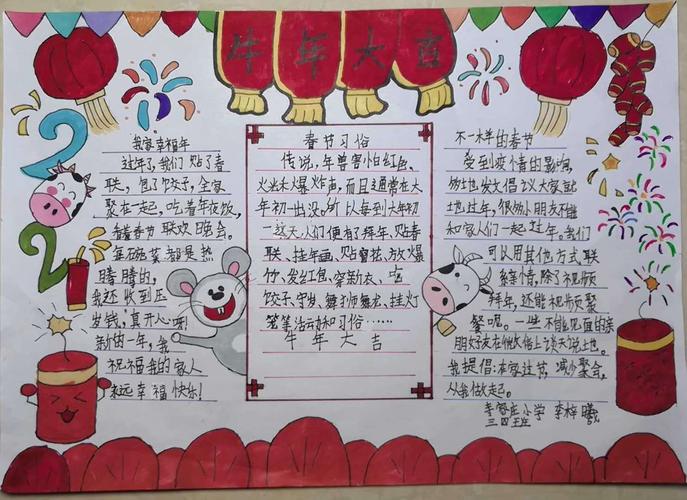 牛年大吉
2021
我家幸福年
过年了,我们贴了春
联,包了饺子,全家
聚在一起,吃着年夜饭,
看着春节联欢晚会。
每碗菜都是热
腾腾的。
我还收到压
岁钱,真开心呀!
新的一年,我
祝福我的家人
永远幸福快乐!
春节习俗
传说,年兽害怕红色、
火光和爆炸声,而且通常在大
年初一出没,所以每到大年初
一这天,人们便有了拜年、贴春
联、挂年画、贴窗花、放爆
竹、发红包、穿新衣、吃
饺子、守岁、舞狮舞龙、挂灯
笼等活动和习俗……
牛年大吉
不一样的春节
受到疫情的影响,
各地发文倡议大家就
地过年,很多小朋友不能
和家人们一起过年。我们
可以用其他方式联
络亲情,除了视频
拜年,还能视频聚
餐呢。一些不能见面的亲
朋好友在微信上谈天说地。
我提倡:在家过节,减少聚会,
从我做起。
李家庄小学 李梓曦
三四班